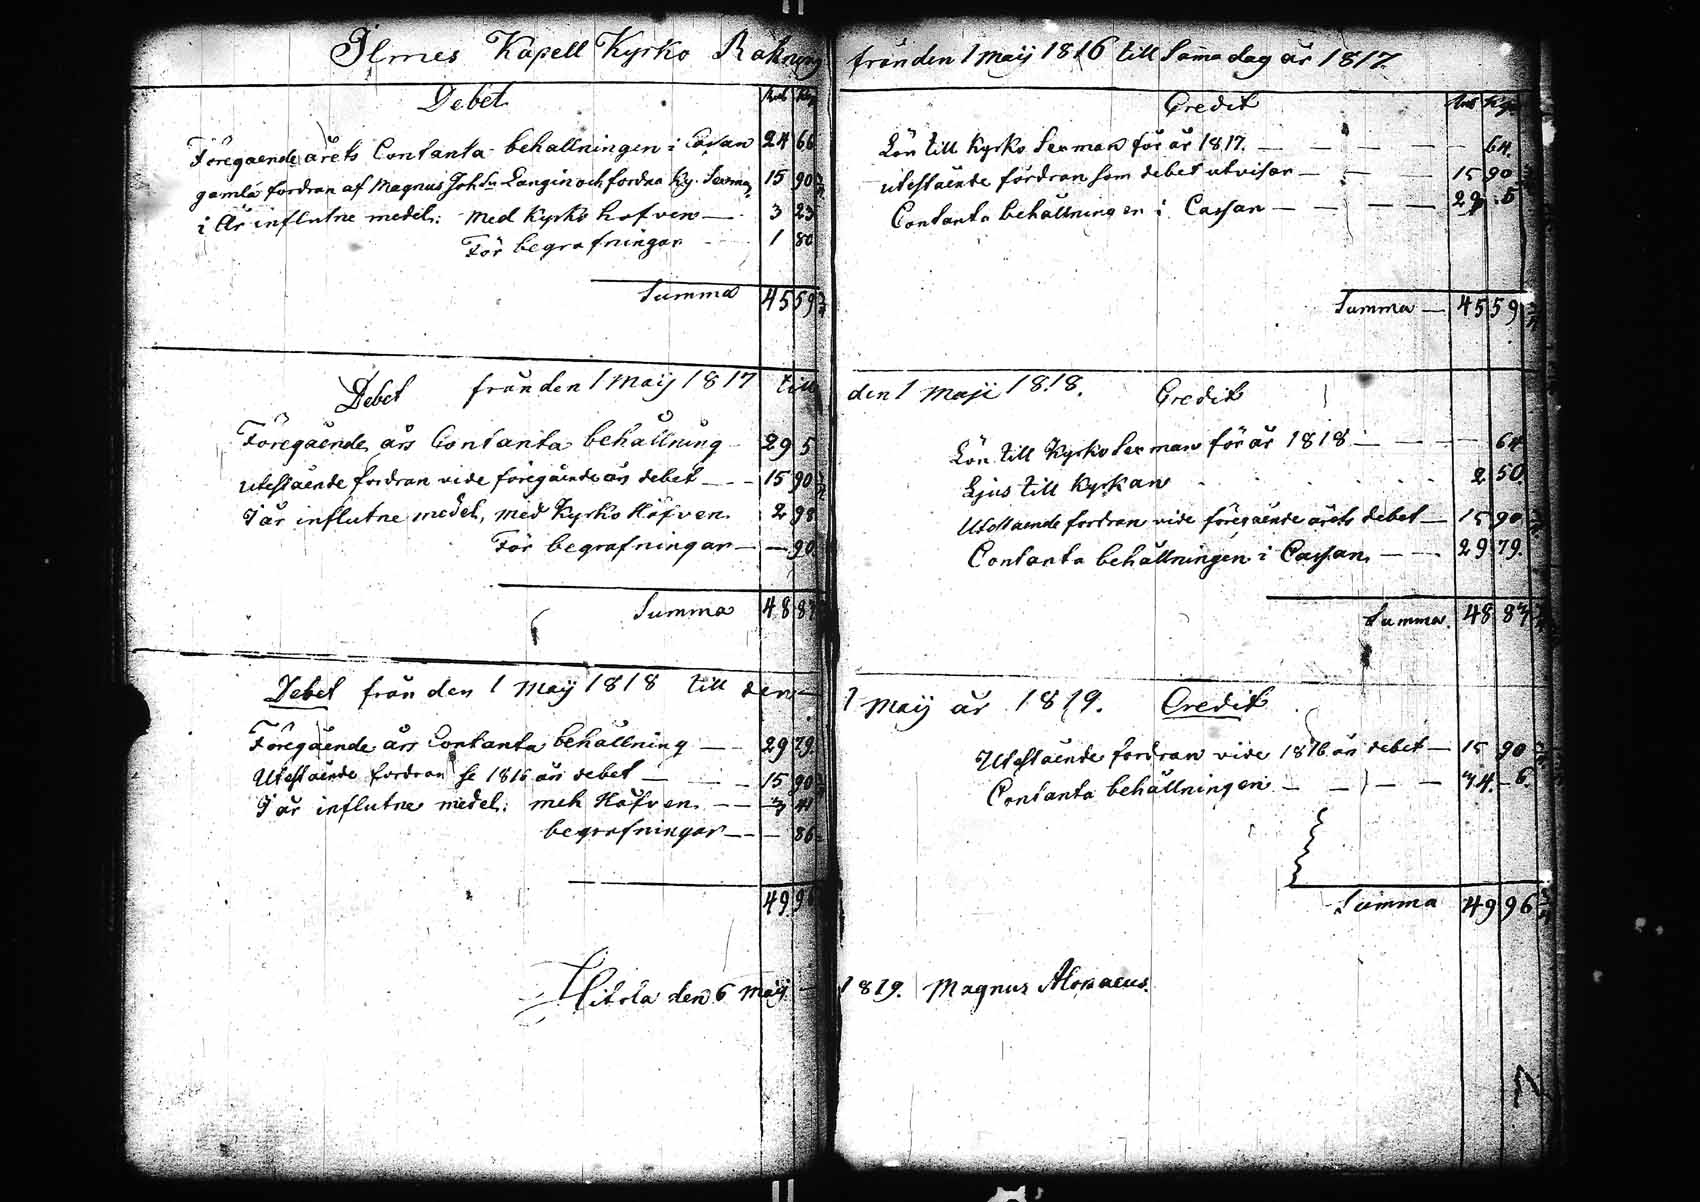 Ilmes Kapell Kyrko Räkning
Debet
Rub Kop
Föregående årets Contanta behållningen i Casan 24 66
gamla fordran af Magnus Joh Sn Langin och fordna Ky. Sexman 15 90 3/4
i År influtne medel: med Kyrko hofven — 3 23
För begrafningar 1 80
Summa 45 59 3/4
Debet från den 1 Maij 1817 till
Föregående års Contanta behållning 29 5
utestående fordran vide föregående års debet — 15 90 3/4
I år influtne medel, med Kyrko Håfven 2 98
För begrafningar — — 90
Summa 48 83
Debet från den 1 Maij 1818 till den
Föregående års Contanta behållning — 29 79
Utestående fordran se 1816 års debet — 15 90 3/4
I år influtne medel: meh Håfven — 3 41
begrafningar — — 86
49 96
Hitola den 6 Maij
från den 1 Maij 1816 till Sama dag år 1817.
Credit
Rub Kop
Lön till Kyrko Sexman för år 1817. — 64.
utestående fordran som debet utvisar — 15 90 3/4
Contanta behållningen i Cassan — 29 5
Summa — 45 59 3/4
den 1 Maji 1818. Credit
Lön till Kyrko Sexman för år 1818 — 64
Ljus till Kyrkan 2 50
Utestaende fordran vide föregående årets debet — 15 90 3/4
Contanta behållningen i Cassan — 29 79.
Summa. 48 83 3/4
1 Maij år 1819. Credit
Utestående fordran vide 1816 års debet — 15 90 3/4
Contanta behållningen — 34 6
Summa 49 96 3/4
1819. Magnus Alopaeus.
7